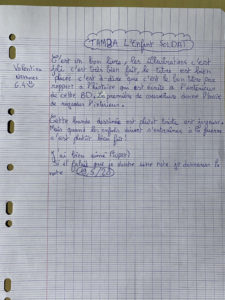 TAMBA L'Enfant SOLDAT
Valentine
6.4
C'est un bon livre, les illustrations c'est
joli c'est très bien fait, le titre est bien
placé c'est à dire que c'est le bon titre par
rapport à l'histoire qui est écrite à l'intérieur
de cette BD. La première de couverture donne l'envie
de regarder l'intérieur.
Cette bande dessinée est plutôt triste est
Mais quand les enfants doivent s'entraîner à la guerre
c'est plutôt bien fait.
J'ai bien aimé
Si il fallait que je donne une note je donnerais la
note